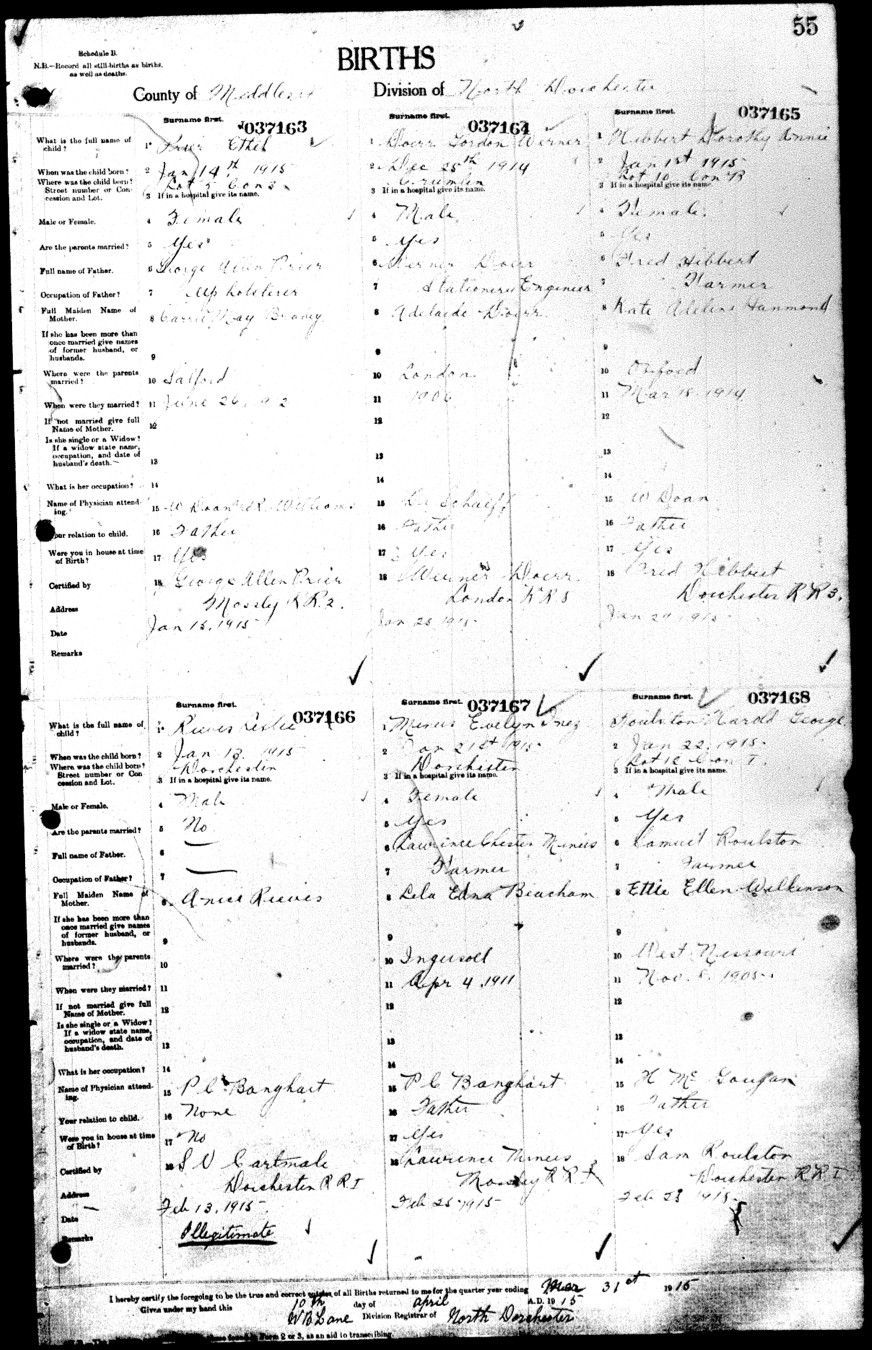 55
Schedule B.
N.B.—Record all still-births as births,
as well as deaths.
BIRTHS
County of Middlesex Division of North Dorchester
Surname first. 037163
Surname first. 037164
Surname first. 037165
What is the full name of
child?
1 Prier Ethel
1 Doerr Gordon Werner
1 Hibbert Dorothy Annie
When was the child born?
2 Jan 14th 1915
2 Dec 25th 1914
2 Jan 1st 1915
Where was the child born?
Street number or Con-
cession and Lot.
Lot 5 Con 2
Crumlin
Lot 10 Con B
3 If in a hospital give its name.
3 If in a hospital give its name.
3 If in a hospital give its name.
Male or Female.
4 Female
4 Male
4 Female
Are the parents married?
5 Yes
5 Yes
5 Yes
Full name of Father.
6 George Allen Prier
6 Werner Doerr
6 Fred Hibbert
Occupation of Father?
7 Upholsterer
7 Stationery Engineer
7 Farmer
Full Maiden Name of
Mother.
8 Carrie May
8 Adelaide Doerr
8 Kate Adelens Hammond
If she has been more than
once married give names
of former husband, or
husbands.
9
9
9
Where were the parents
married?
10 Salford
10 London
10 Oxford
When were they married?
11 June 26
11 1906
11 Mar 18 1914
If not married give full
Name of Mother.
12
12
12
Is she single or a Widow?
If a widow state name,
occupation, and date of
husband's death.
13
13
13
What is her occupation?
14
14
14
Name of Physician attend-
ing.
15 W Doan Williams
15
15 W Doan
Your relation to child.
16 Father
16 Father
16 Father
Were you in house at time
of Birth?
17 Yes
17 Yes
17 Yes
Certified by
18 George Allen Prier
18 Werner Doerr
18 Fred Hibbert
Address
Mossly R.R. 2.
London RR 8
Dorchester RR 3.
Date
Jan 15, 1915
Jan 25 1915
Jan 29, 1915
Remarks
Surname first. 037166
Surname first. 037167
Surname first. 037168
What is the full name of
child?
1 Reeves Leslie
1 Minus Evelyn Inez
1 Roulston Harold George
When was the child born?
2 Jan 13, 1915
2 Jan 21st 1915
2 Jan 22, 1915
Where was the child born?
Street number or Con
cession and Lot.
Dorchester
Dorchester
Lot 12 Con I
3 If in a hospital give its name.
3 If in a hospital give its name.
3 If in a hospital give its name.
Male or Female.
4 Male
4 Female
4 Male
Are the parents married?
5 No
5 Yes
5 Yes
Full name of Father.
6 —
6 Lawrence Chester Minus
6 Samuel Roulston
Occupation of Father?
7 —
7 Farmer
7 Farmer
Full Maiden Name of
Mother.
8 Reeves
8 Lela Edna Beacham
8 Ettie Ellen Wilkinson
If she has been more than
once married give names
of former husband, or
husbands.
9
9
9
Where were the parents
married?
10
10 Ingersoll
10 West Nissouri
When were they married?
11
11 Apr 4, 1911
11 Nov. 8, 1905
If not married give full
Name of Mother.
12
12
12
Is she single or a Widow?
If a widow state name,
occupation, and date of
husband's death.
13
13
13
What is her occupation?
14
14
14
Name of Physician attend-
ing.
15 P C Banghart
15 P C Banghart
15 H Mc
Your relation to child.
16 None
16 Father
16 Father
Were you in house at time
of Birth?
17 No
17 Yes
17 Yes
Certified by
18 S V Cartmale
18 Lawrence Minus
18 Sam Roulston
Address
Dorchester RR I
Mossley RR I
Dorchester RR I
Date
Feb 13, 1915
Feb 25 1915
Feb 23 1915
Remarks
Illegitimate
I hereby certify the foregoing to be the true and correct entries of all Births returned to me for the quarter year ending Mar 31st 1915
Given under my hand this 10th day of April A.D. 1915
W B Lane Division Registrar of North Dorchester
Form 2 or 3, as an aid to transcribing.